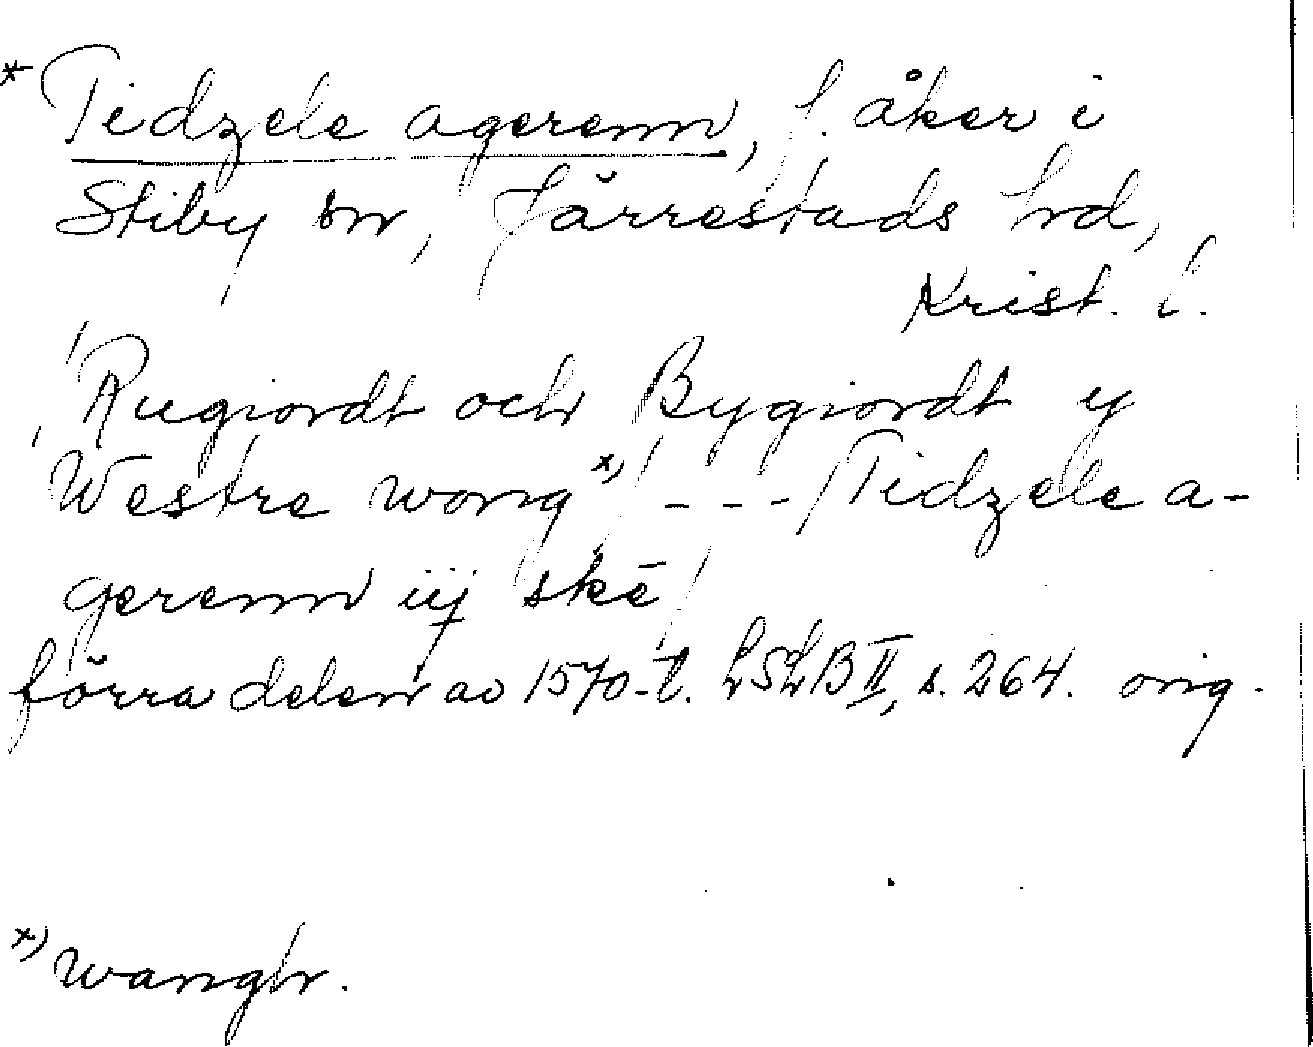 * Tidzele agerenn, f. åker i
Stiby sn, Järrestads hd,
Krist. l.
Rugiordt och Bygiordt y
Westre wong x) / - - - / Tidzele a-
gerenn iij skē
förra delen av 1570-t. LSLB II, s. 264. orig.
x) wangh.